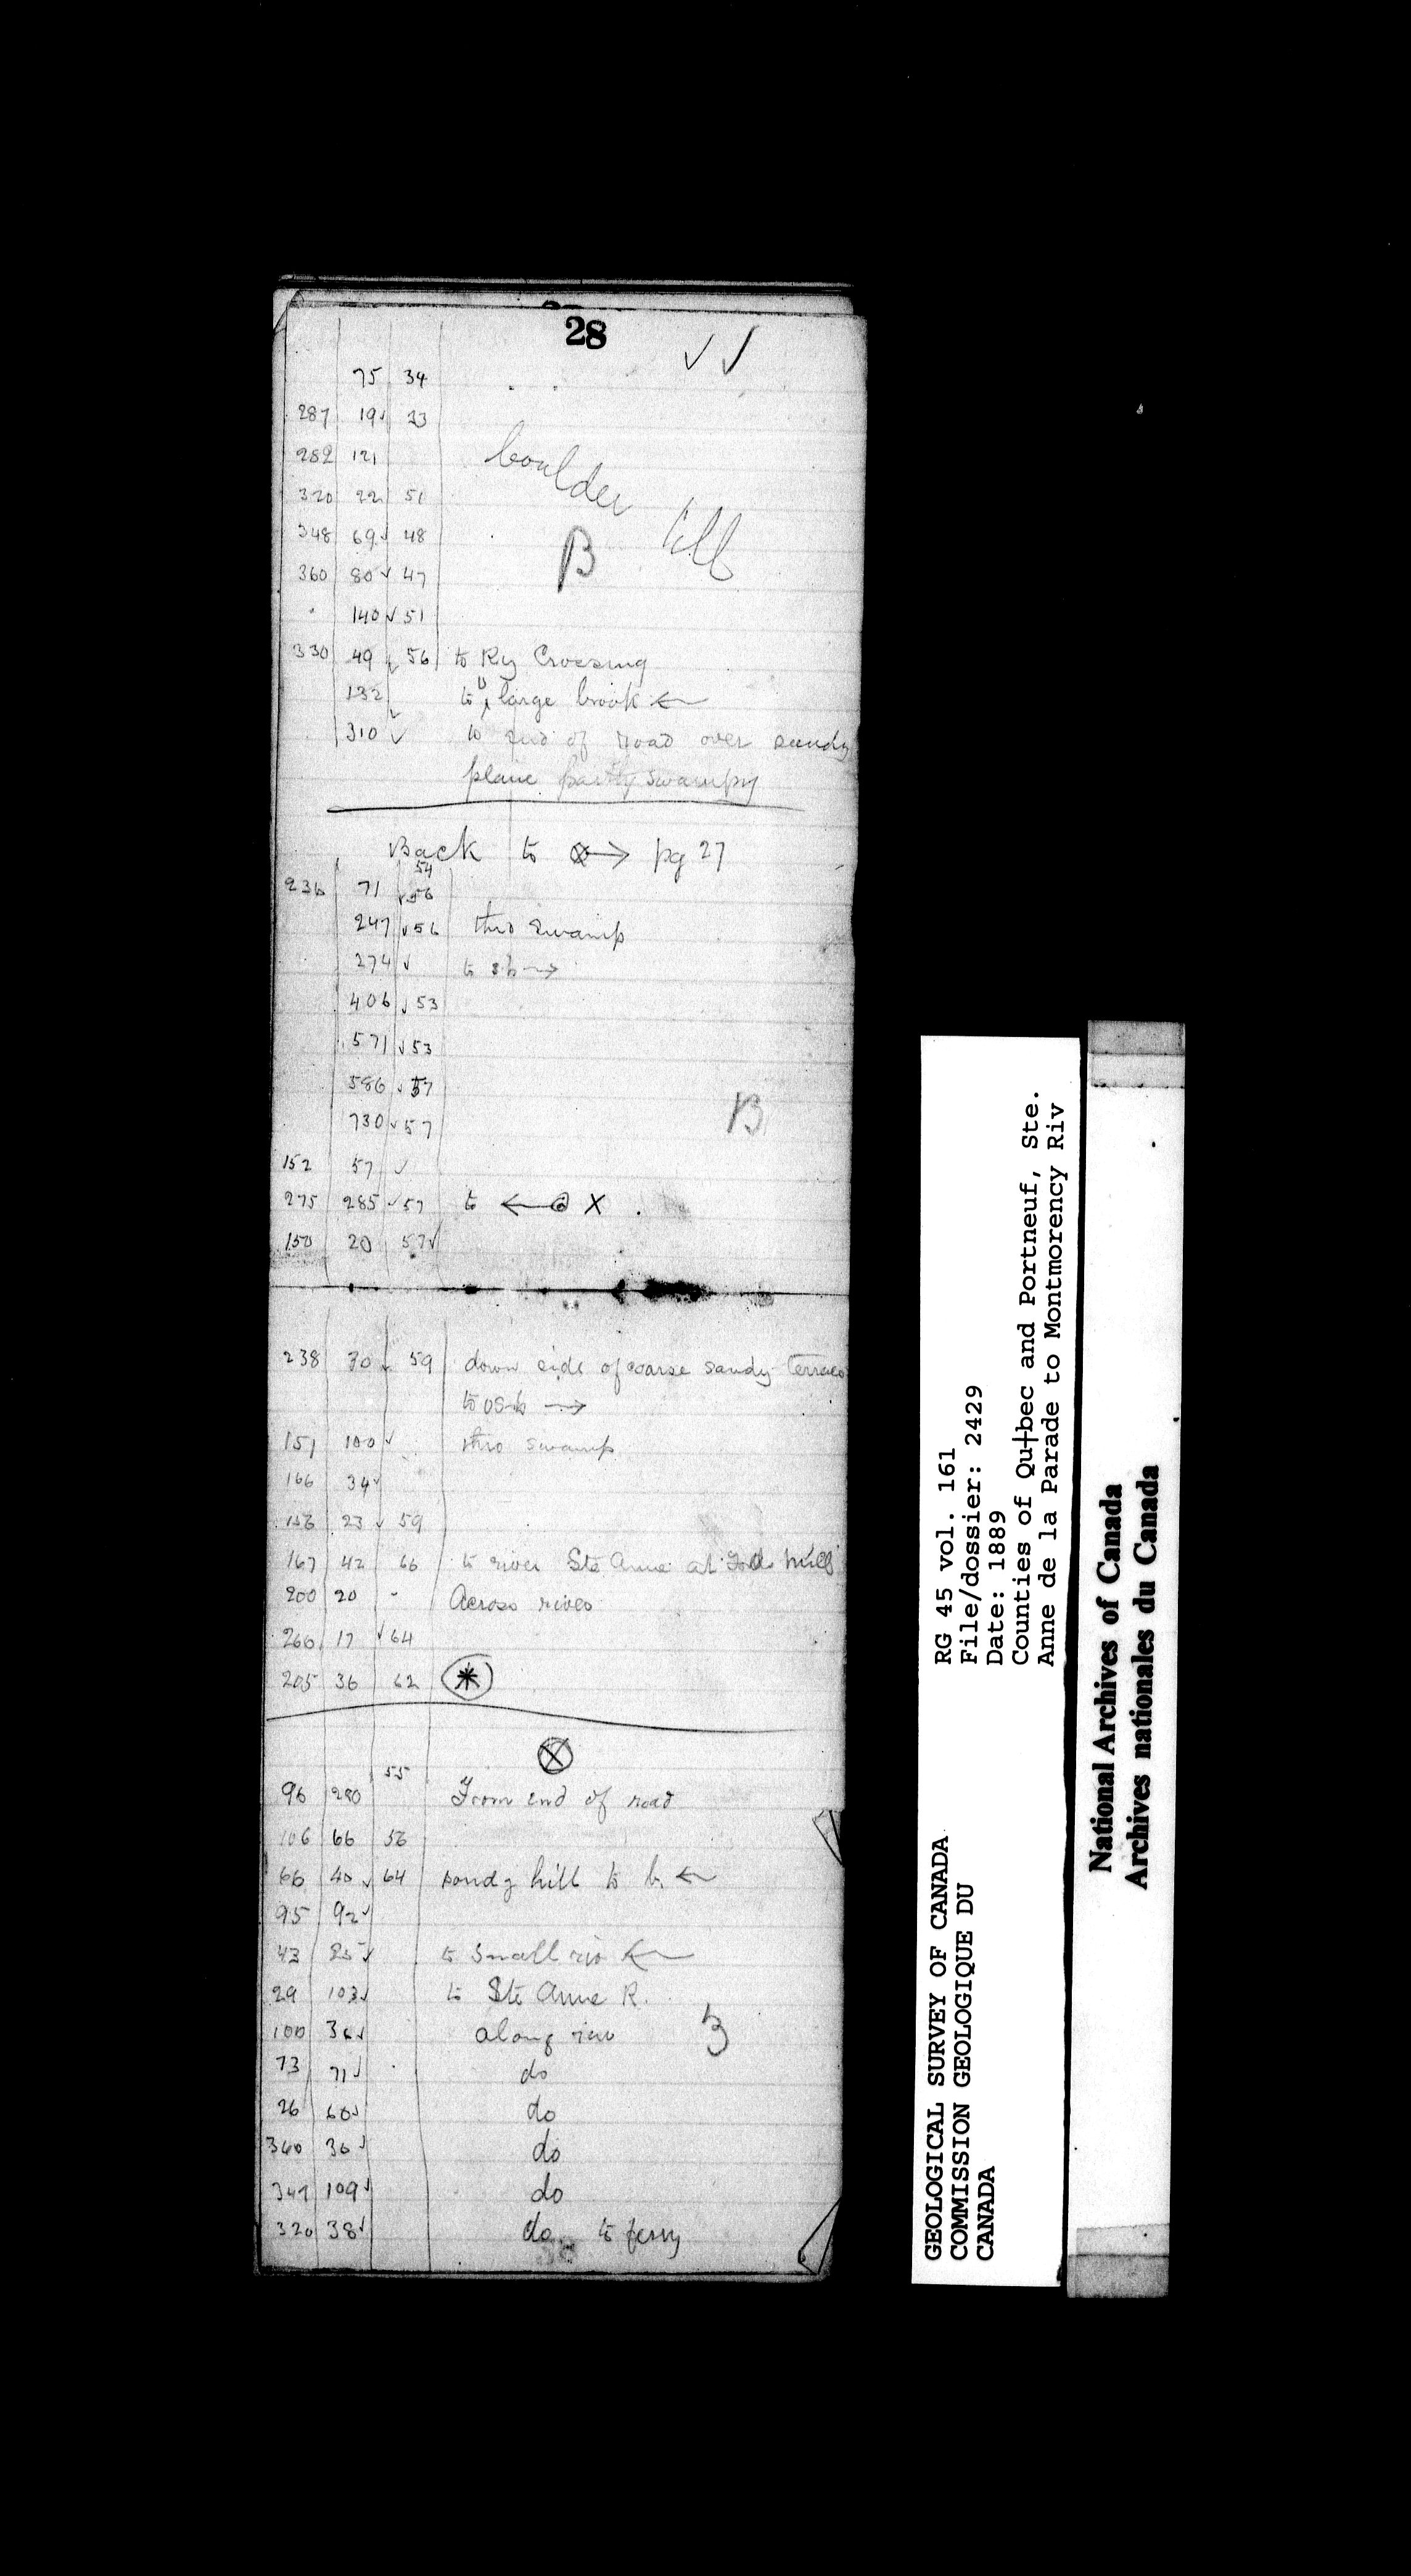 28 ✓ ✓
75 34
287 19✓ 23
282 121
320 22 51
348 69✓ 48
360 80 ✓ 47
boulder till
B
" 140 ✓ 51
330 49 ✓ 56 to Ry Crossing
132 ✓ to large brook ←
310 ✓ to end of road over sandy
plane partly swampy
Back to ⊗→ pg 27
54
236 71 ✓ 56
247 ✓ 56 thro swamp
274 ✓ to sb →
406 ✓ 53
571 ✓ 53
586 ✓ 57
730 ✓ 57
B
152 57 ✓
275 285 ✓ 57 to ← X
150 20 57✓
238 30 ✓ 59 down side of coarse sandy terrace
to →
151 100 ✓ thro swamp
166 34✓
23 ✓ 59
167 42 66 to river Ste Anne at Mill
200 20 - Across river
260 17 ✓ 64
205 36 62 ✱
⊗
55
96 280 From end of road
106 66 56
66 40 ✓ 64 sandy hill to b. ←
95 92✓
43 25✓ to small riv ←
29 103✓ to Ste Anne R.
100 36✓ along riv
B
73 71✓ do
26 60✓ do
340 36✓ do
347 109✓ do
320 38✓ do to ferry
RG 45 vol. 161
File/dossier: 2429
Date: 1889
Counties of Qu┼bec and Portneuf, Ste.
Anne de la Parade to Montmorency Riv
GEOLOGICAL SURVEY OF CANADA
COMMISSION GEOLOGIQUE DU
CANADA
National Archives of Canada
Archives nationales du Canada